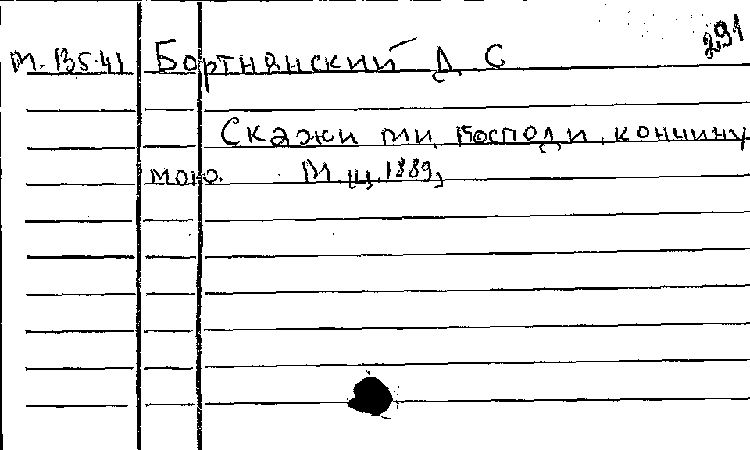 291
М-135.41 Бортнянский Д С
Скажи ми, Господи, кончину
мою. М. Ц. 1889,